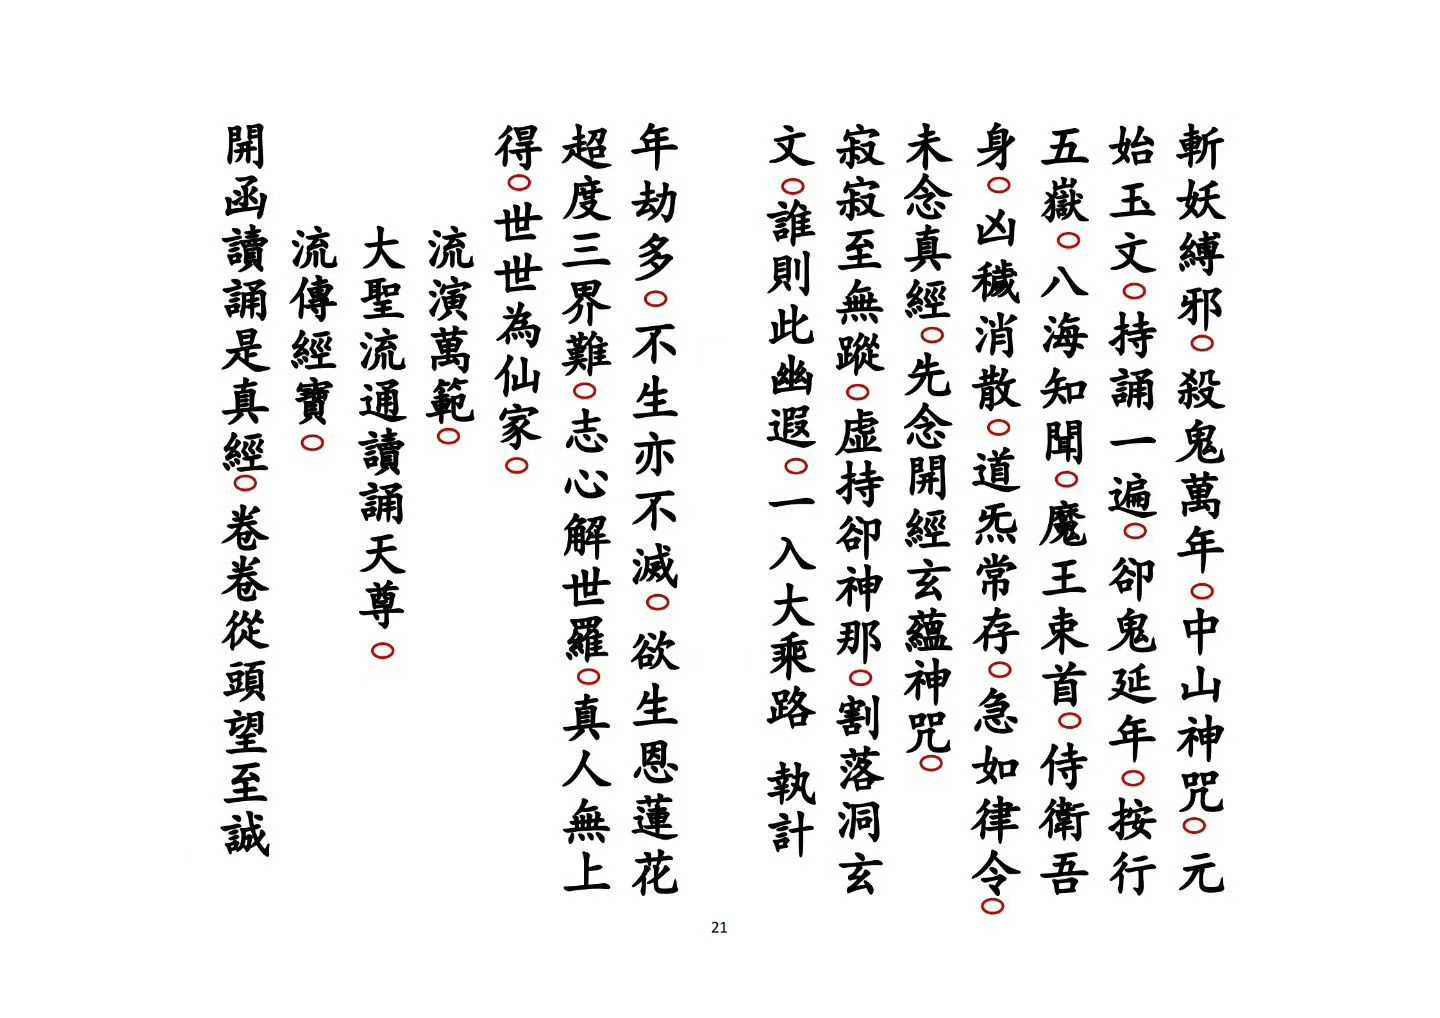 斬妖縛邪○殺鬼萬年○中山神咒○元
始玉文○持誦一遍○卻鬼延年○按行
五嶽○八海知聞○魔王束首○侍衛吾
身○凶穢消散○道炁常存○急如律令○
未念真經○先念開經玄蘊神咒○
寂寂至無蹤○虛持卻神那○割落洞玄
文○誰則此幽遐○一入大乘路 執計
年劫多○不生亦不滅○欲生恩蓮花
超度三界難○志心解世羅○真人無上
得○世世為仙家○
流演萬範○
大聖流通讀誦天尊○
流傳經寶○
開函讀誦是真經○卷卷從頭望至誠
21